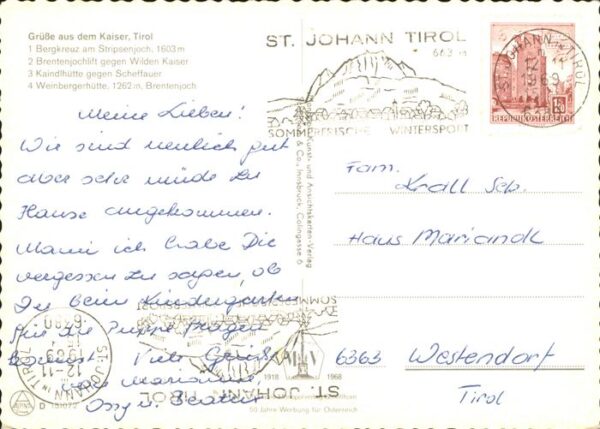 Grüße aus dem Kaiser, Tirol
1 Bergkreuz am Stripsenjoch, 1603 m
2 Brentenjochlift gegen Wilden Kaiser
3 Kaindlhütte gegen Scheffauer
4 Weinbergerhütte, 1262 m, Brentenjoch
ST. JOHANN TIROL
663 m
SOMMERFRISCHE WINTERSPORT
ST. JOHANN IN TIROL
1969
REPUBLIK ÖSTERREICH
Meine Lieben!
Wir sind neulich gut
aber sehr müde zu
Hause angekommen.
Mami ich habe Dir
vergessen zu sagen, ob
Du beim Kindergarten
für die Puppe fragen
Viele Grüße
Marianne,
Ossy u. Beatrix
Kunst- und Ansichtskarten-Verlag
& Co., Innsbruck, Colingasse 6
Fam.
Krall Seb.
Haus Mariandl
6363 Westendorf
Tirol
ST. JOHANN IN TIROL
12-11
1969
6380
SOMMERFRISCHE
ST. JOHANN TIROL
1918 1968
50 Jahre Werbung für Österreich
D